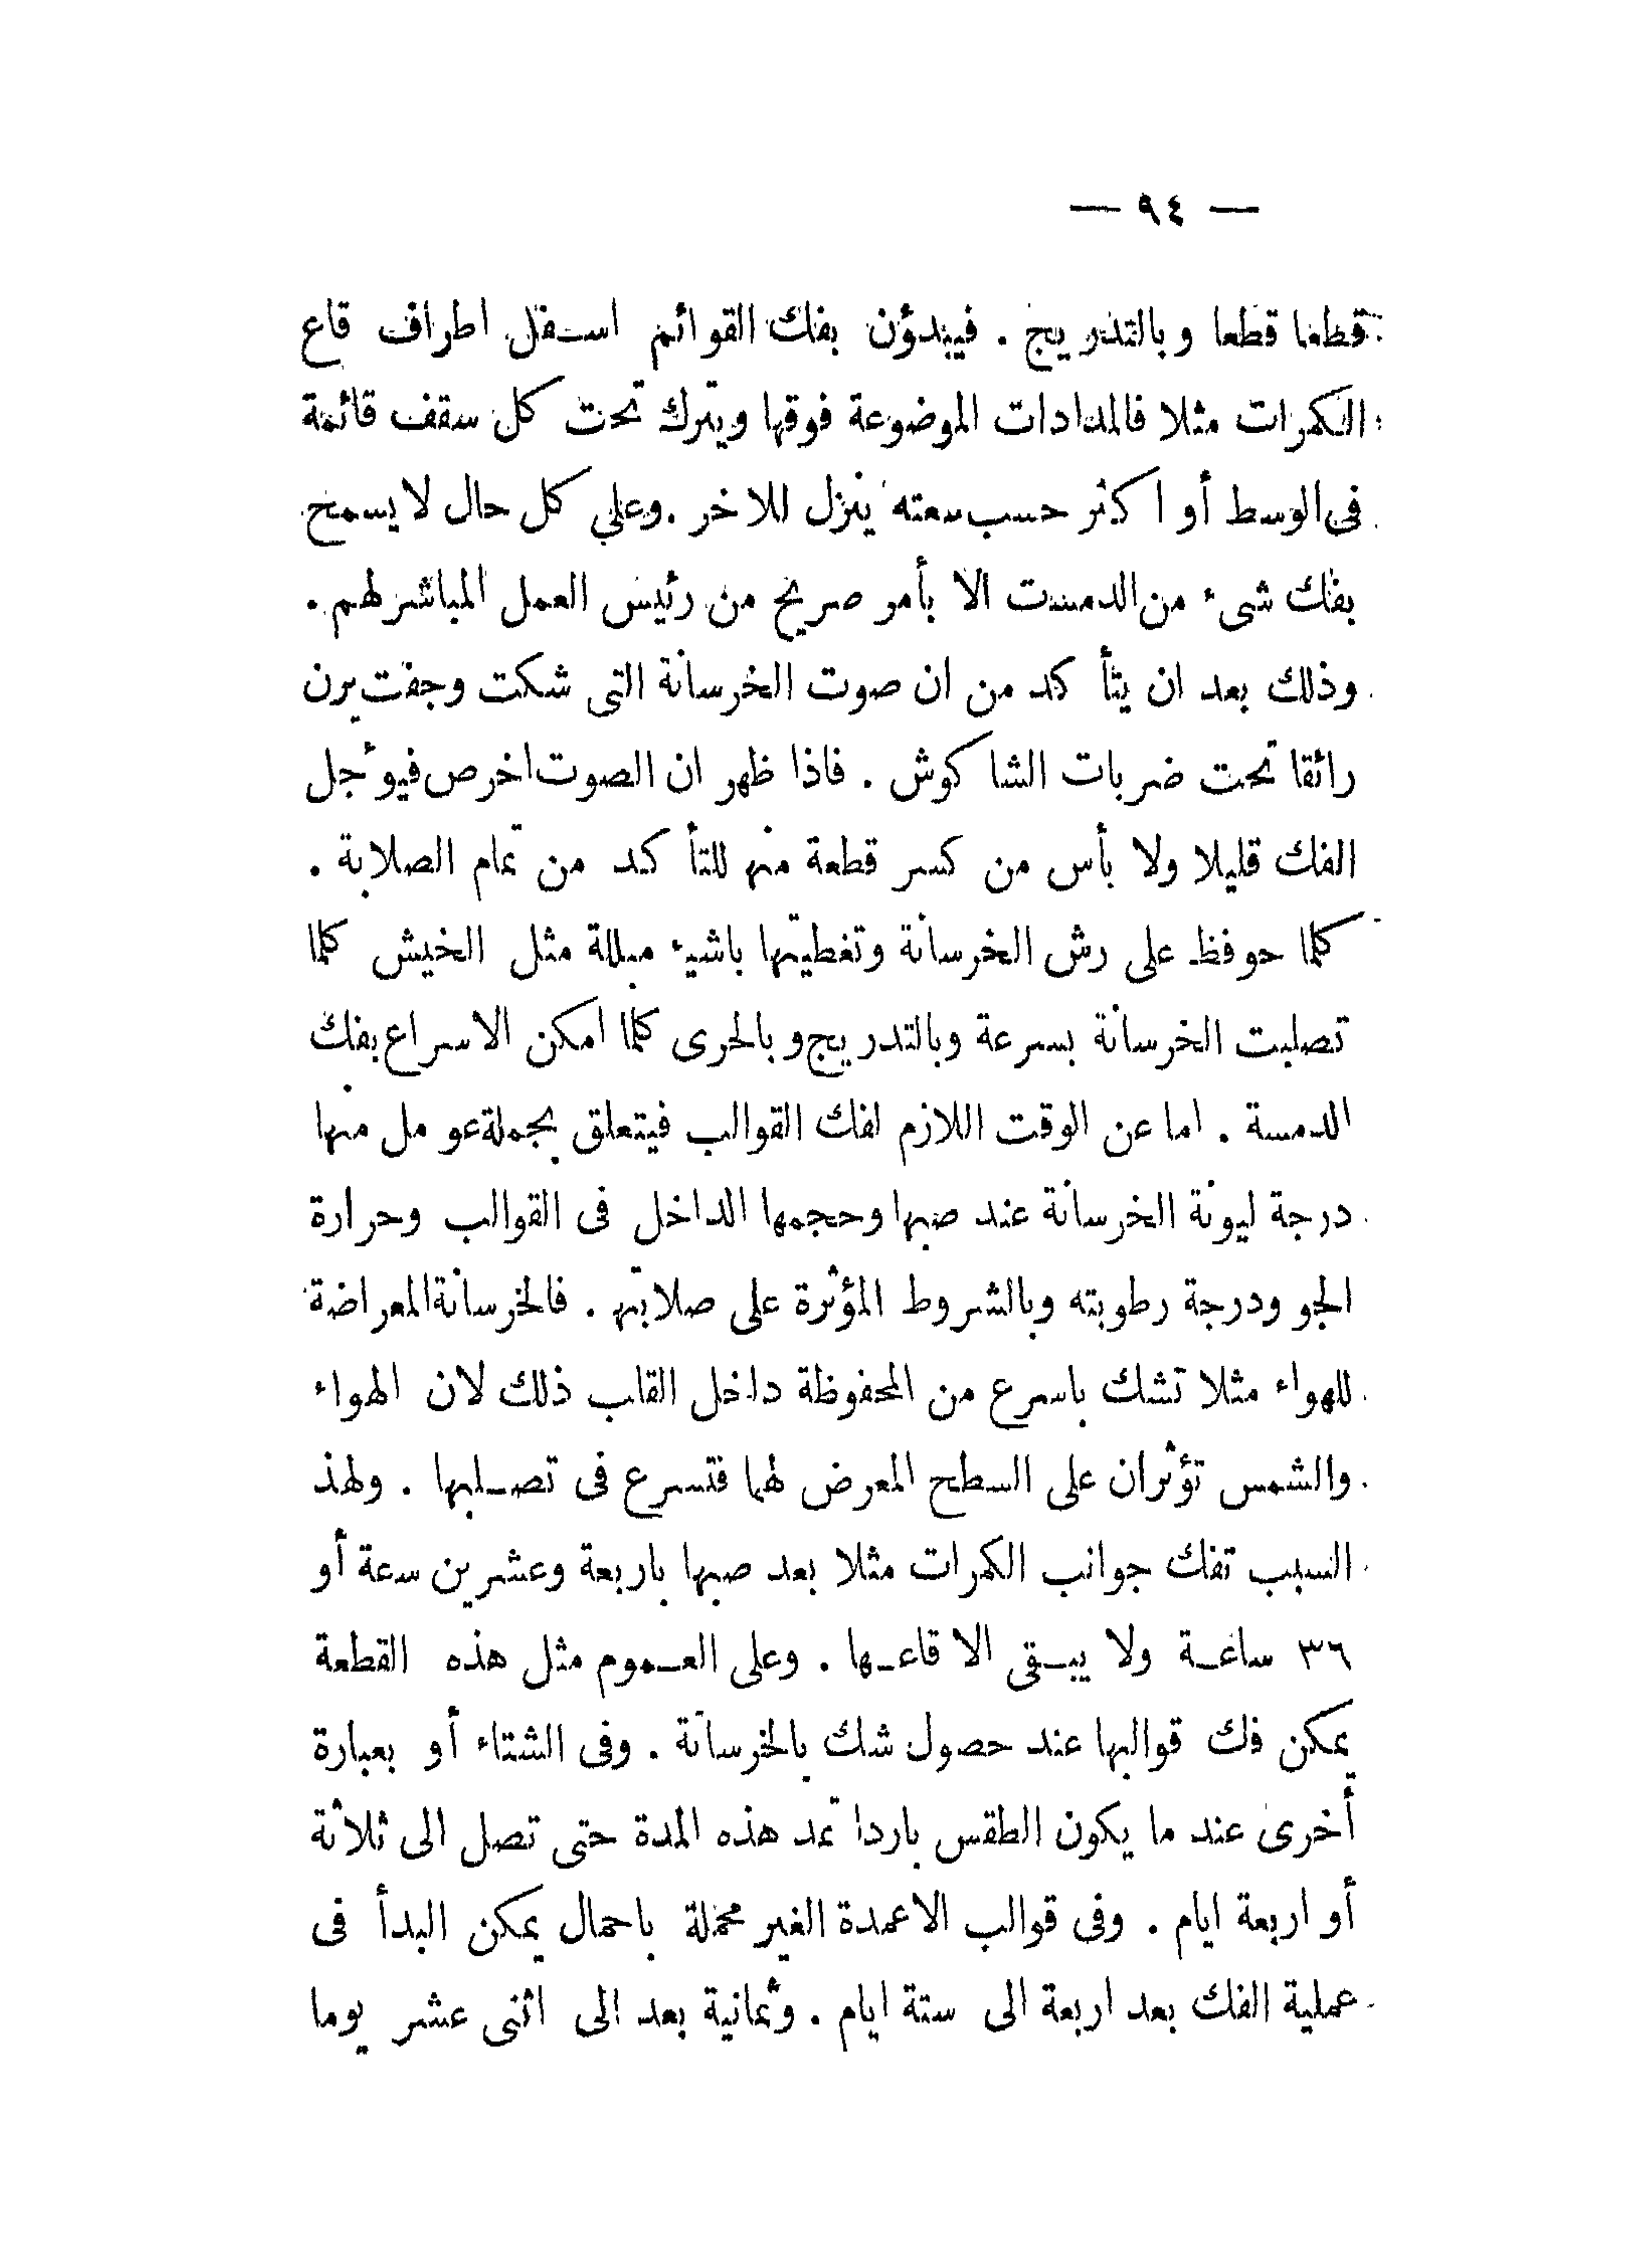 — ٩٤ —
قطعا قطعا وبالتدريج . فيبدؤن بفك القوائم اسفل اطراف قاع
الكمرات مثلا فالمدادات الموضوعة فوقها ويترك تحت كل سقف قائمة
فى الوسط أو اكثر حسب سعته ينزل للاخر . وعلي كل حال لا يسمح
بفك شىء من الدمست الا بأمر صريح من رئيس العمل المباشر لهم .
وذلك بعد ان يتأكد من ان صوت الخرسانة التى شكت وجفت يرن
رائقا تحت ضربات الشاكوش . فاذا ظهر ان الصوت اخرص فيوْجل
الفك قليلا ولا بأس من كسر قطعة منها للتأكد من تمام الصلابة .
كلما حوفظ على رش الخرسانة وتغطيتها باشيء مبللة مثل الخيش كلما
تصلبت الخرسانة بسرعة وبالتدريج وبالحرى كلما امكن الاسراع بفك
الدمسة . اما عن الوقت اللازم لفك القوالب فيتعلق بجملة عو مل منها
درجة ليونة الخرسانة عند صبها وحجمها الداخل فى القوالب وحرارة
الجو ودرجة رطوبته وبالشروط المؤثرة على صلابتها . فالخرسانة المعراضة
للهواء مثلا تشك باسرع من المحفوظة داخل القلب ذلك لان الهواء
والشمس تؤثران على السطح المعرض لهما فتسرع فى تصلبها . ولهذ
السبب تفك جوانب الكمرات مثلا بعد صبها باربعة وعشرين سعة أو
٣٦ ساعة ولا يبقى الا قاعها . وعلى العموم مثل هذه القطعة
يمكن فك قوالبها عند حصول شك بالخرسانة . وفى الشتاء أو بعبارة
أخرى عند ما يكون الطقس باردا تمد هذه المدة حتى تصل الى ثلاثة
أو اربعة ايام . وفى قوالب الاعمدة الغير محملة باحمال يمكن البدأ فى
عملية الفك بعد اربعة الى ستة ايام . وثمانية بعد الى اثنى عشر يوما